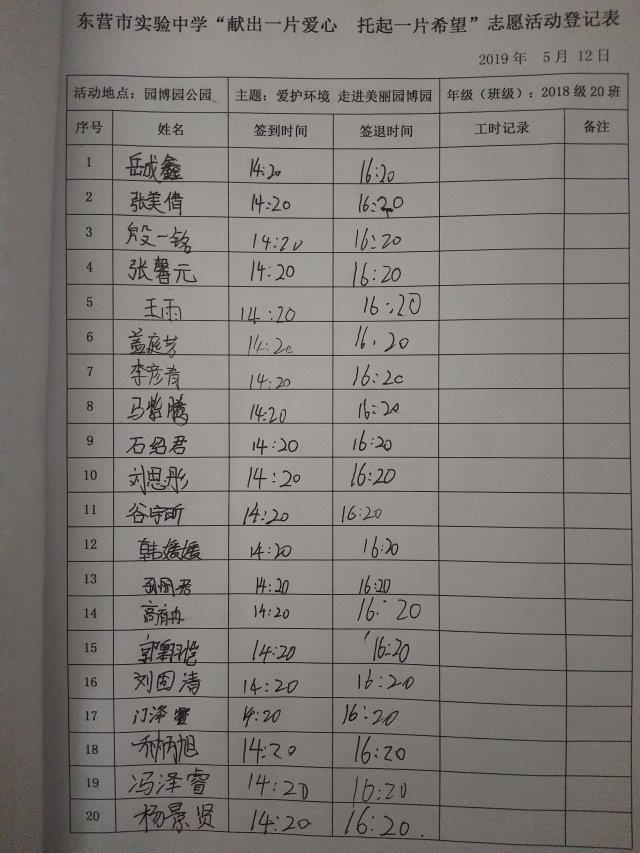 东营市实验中学“献出一片爱心 托起一片希望”志愿活动登记表
2019 年 5 月 12 日
活动地点：园博园公园 主题：爱护环境 走进美丽园博园 年级（班级）：2018 级 20 班
序号 姓名 签到时间 签退时间 工时记录 备注
1 岳成鑫 14:20 16:20
2 张美倩 14:20 16:20
3 殷一铭 14:20 16:20
4 张馨元 14:20 16:20
5 王雨 14:20 16:20
6 盖庭芳 14:20 16:20
7 李彦青 14:20 16:20
8 马紫腾 14:20 16:20
9 石绍君 14:20 16:20
10 刘思彤 14:20 16:20
11 谷宇昕 14:20 16:20
12 韩媛媛 14:20 16:20
13 孙丽君 14:20 16:20
14 14:20 16:20
15 14:20 16:20
16 刘国涛 14:20 16:20
17 14:20 16:20
18 14:20 16:20
19 冯泽睿 14:20 16:20
20 杨景贤 14:20 16:20